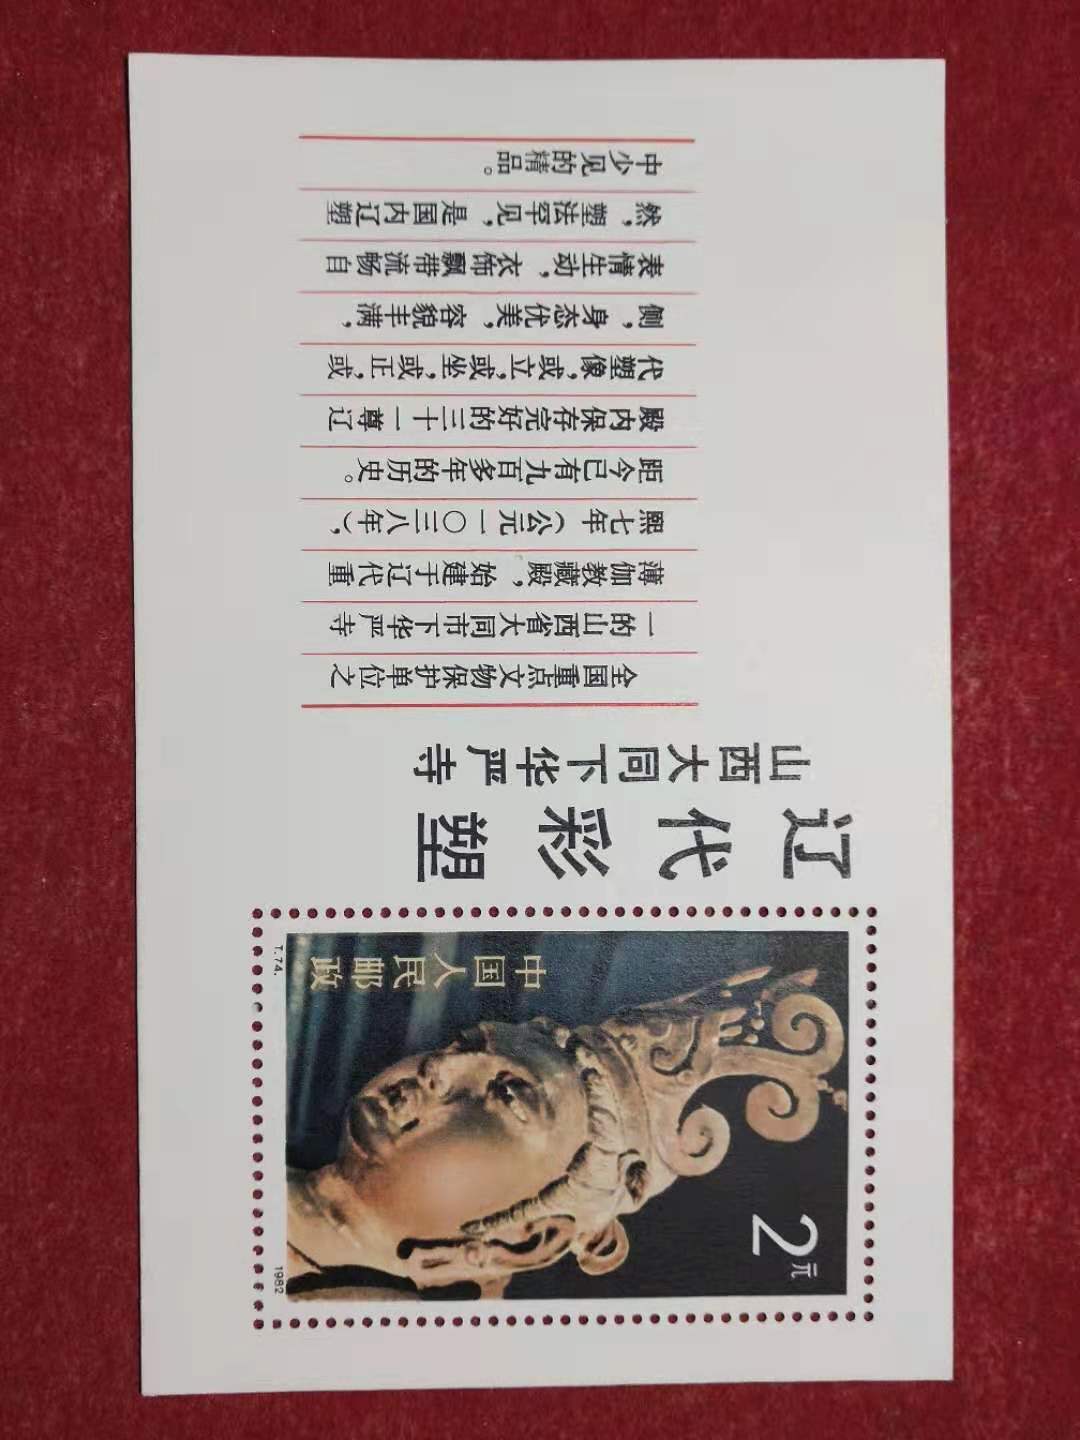 辽代彩塑
山西大同下华严寺
全国重点文物保护单位之
一的山西省大同市下华严寺
薄伽教藏殿，始建于辽代重
熙七年（公元一〇三八年），
距今已有九百多年的历史。
殿内保存完好的三十一尊辽
代塑像，或立，或坐，或正，或
侧，身态优美，容貌丰满，
表情生动，衣饰飘带流畅自
然，塑法罕见，是国内辽塑
中少见的精品。
中国人民邮政
2元
T.74.
1982